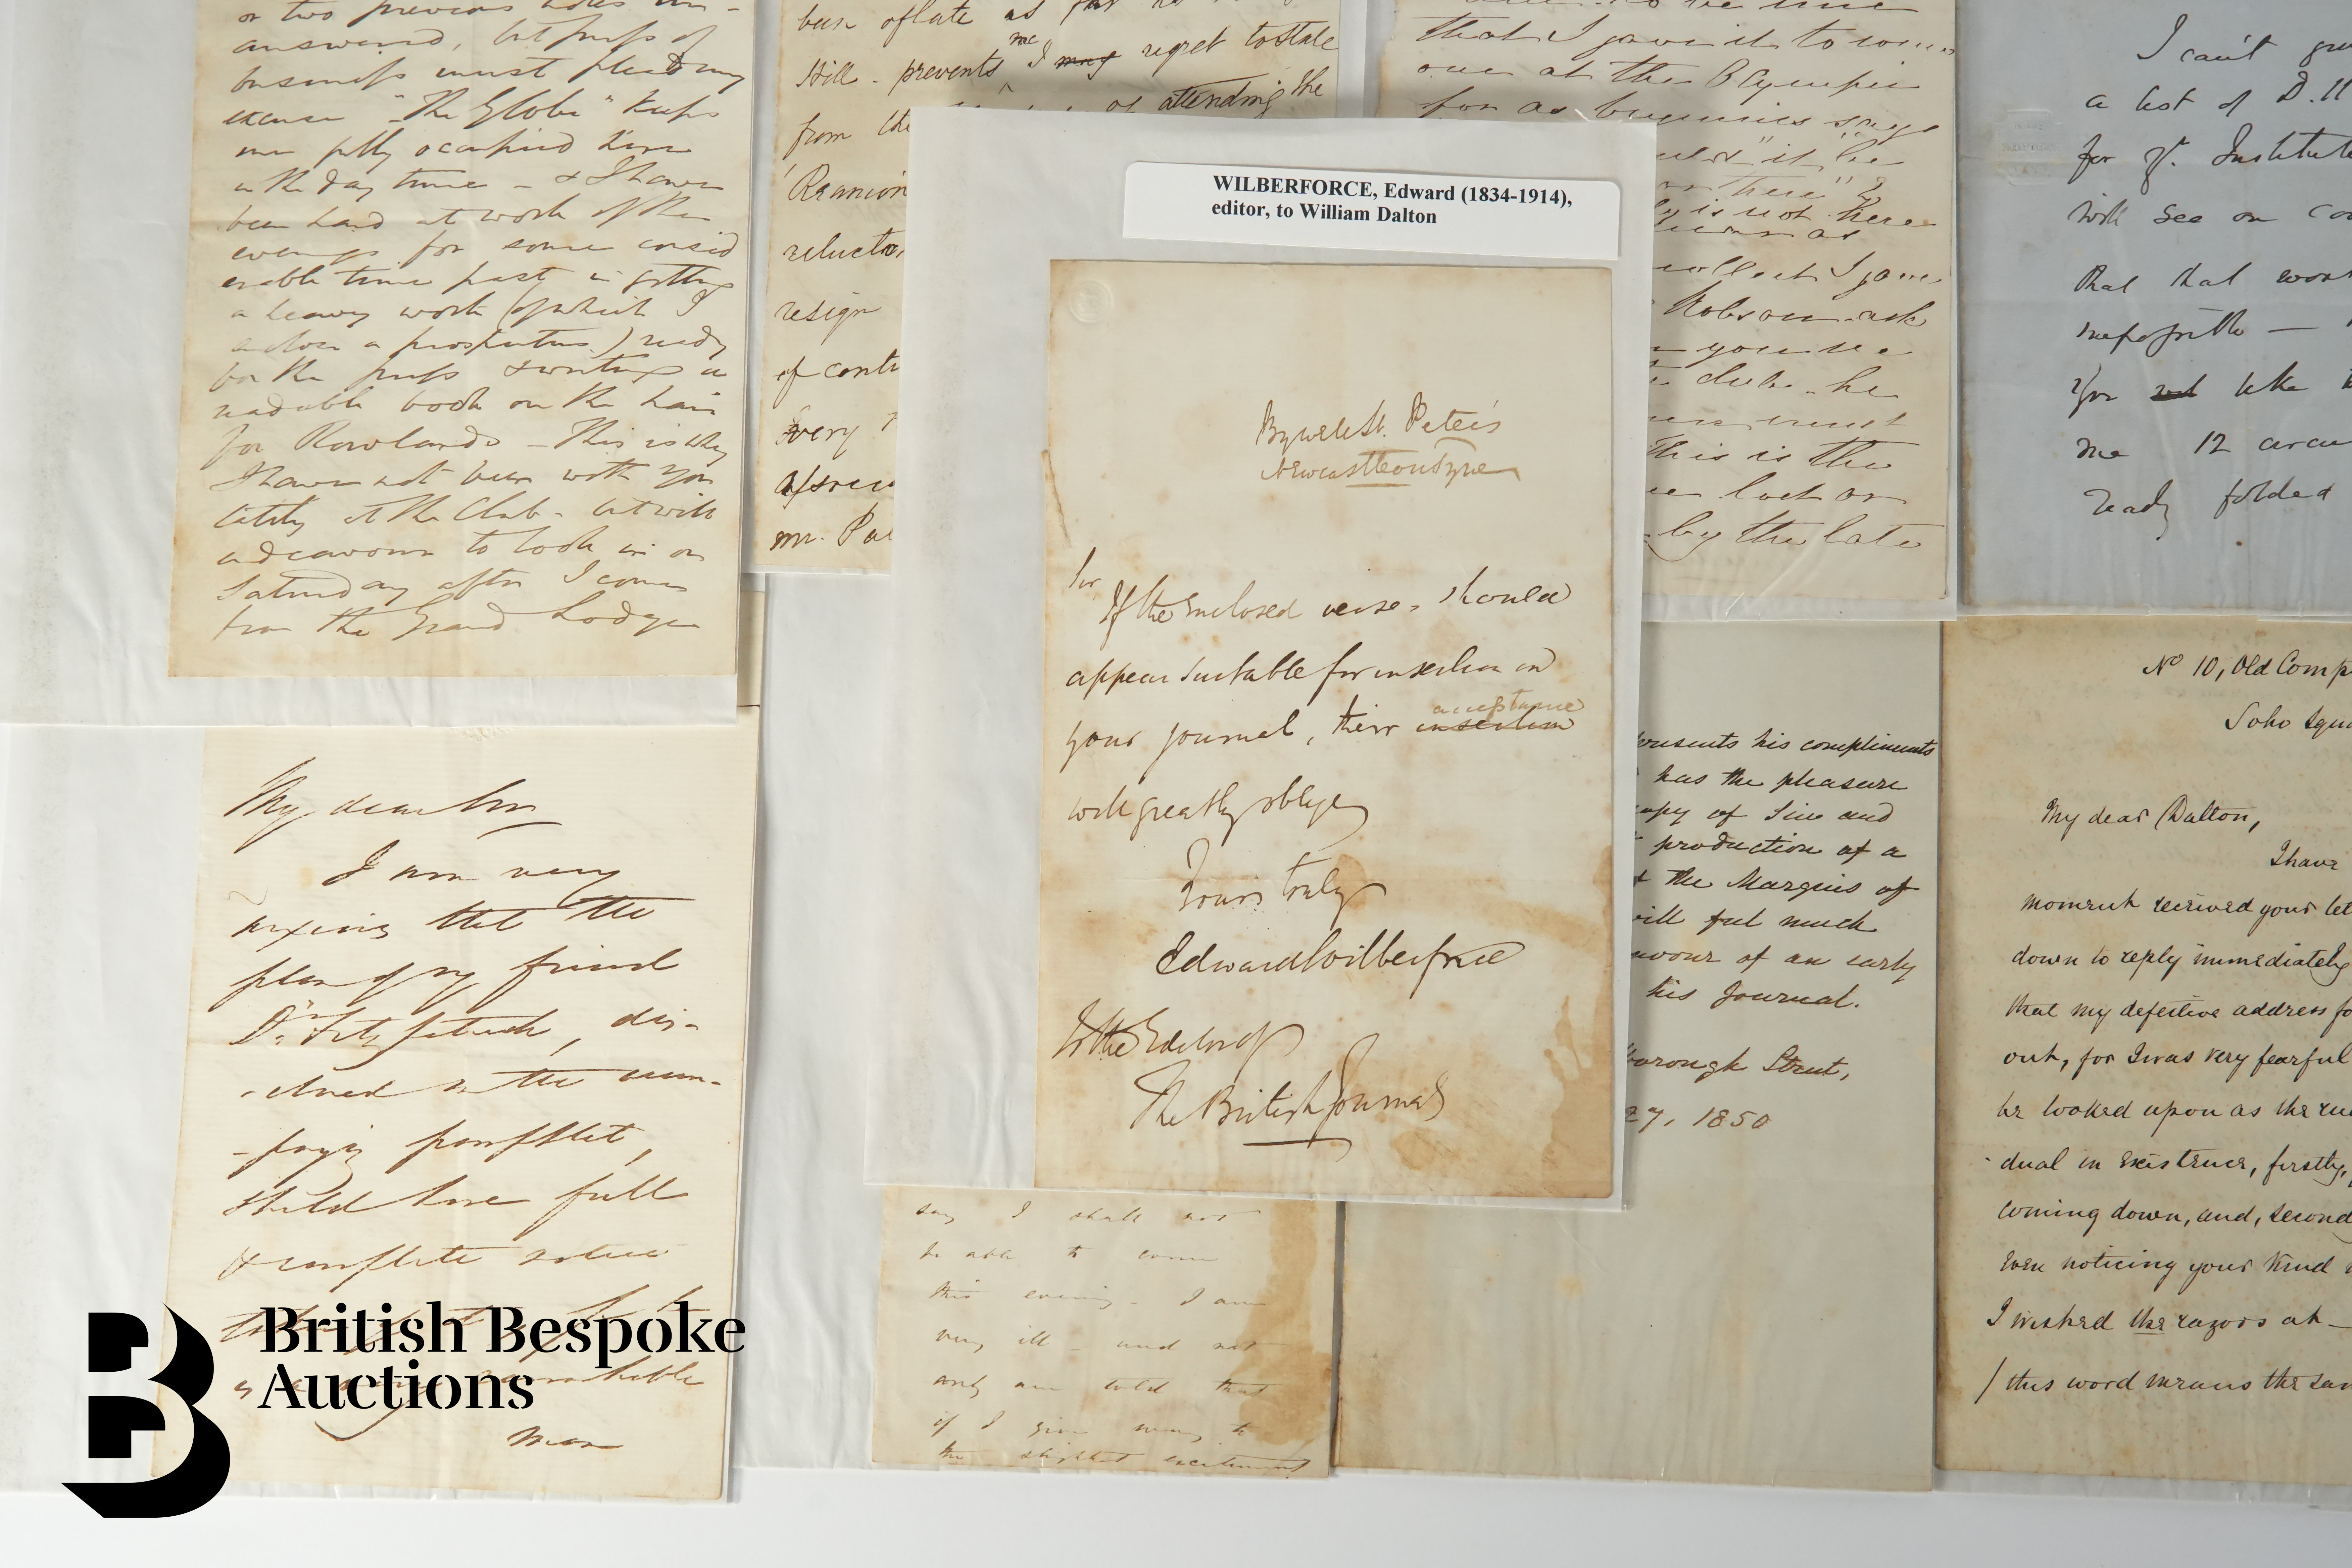 answered, but press of
business must plead my
excuse "The Globe" keeps
me fully occupied here
in the day time - & I have
been hard at work of the
evenings for some consid
erable time past in getting
a heavy work (of which I
enclose a prospectus) ready
for the press & writing a
readable book on the hair
for Rowlands - This is why
I have not been with you
lately at the Club - but will
endeavour to look in on
Saturday after I come
from the Grand Lodge
been of late as far as
Hill - prevents me I may regret to state
from the of attending the
Reunion
reluctan
resign
of contr
Every
Mr. Pa
that I gave it to some
one at the Olympic
for as
it be
there"
is not here
as
collect I gave
Robson - ask
you
club - he
must
This is the
lost or
by the late
I can't gu
a list of D. H
for yr. Institute
will see on co
that that wou
impossible -
you not like
me 12 circu
ready folded
WILBERFORCE, Edward (1834-1914),
editor, to William Dalton
Bywell St. Peter's
Newcastle on Tyne
Sir
If the enclosed verses should
appear suitable for insertion in
acceptance
your journal, their insertion
will greatly oblige
Yours truly
Edward Wilberforce
To the Editor of
The British Journal
My dear Sir
I am very
anxious that the
plan of my friend
Dr. Fitzpatrick, dis-
-closed in the accom-
-panying pamphlet,
should have full
& complete notice
remarkable
man
presents his compliments
has the pleasure
copy of Sin and
production of a
the Marquis of
will feel much
favour of an early
his Journal.
borough Street,
27, 1850
say I shall not
be able to come
this evening - I am
very ill - and not
only am told that
if I give way to
the slightest excitement
No 10, Old Comp
Soho Squa
My dear Dalton,
I have
moment received your let
down to reply immediately
that my defective address fo
out, for I was very fearful
be looked upon as the ru
-dual in existence, firstly,
coming down, and, second
even noticing your kind
I wished the razors at -
/ this word means the sam
British Bespoke
Auctions